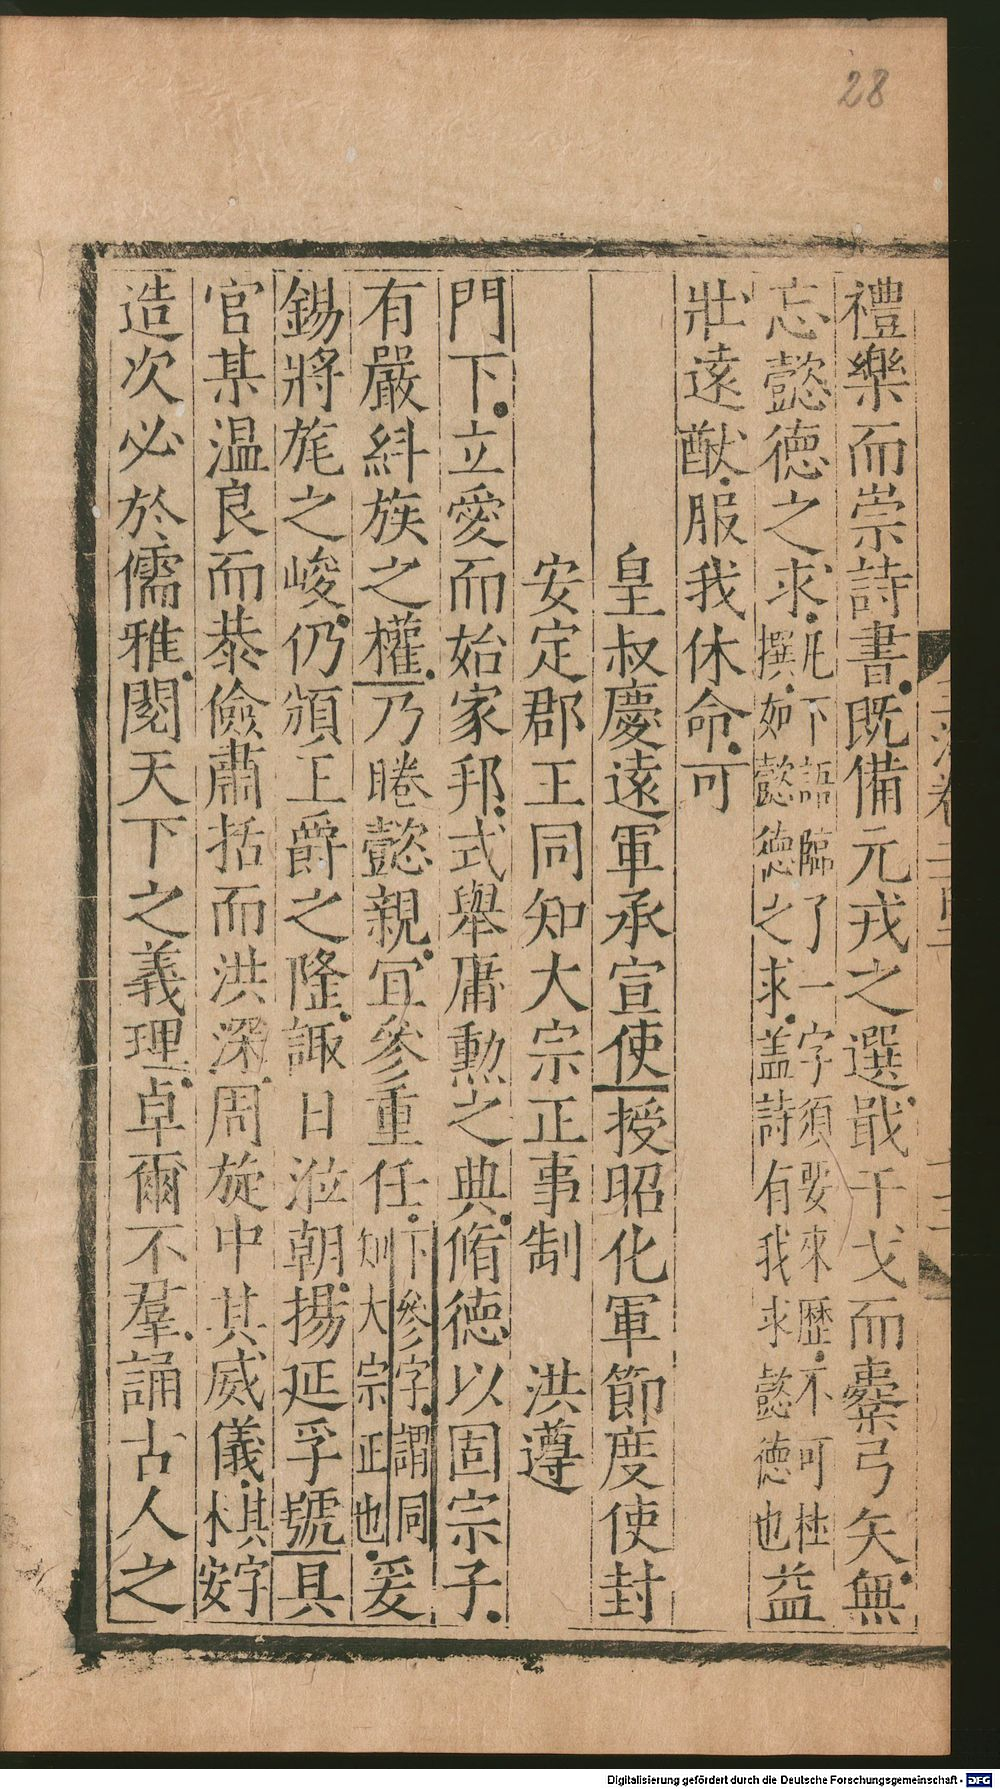 28
禮樂而崇詩書既備元戎之選戢干戈而櫜弓矢無
忘懿德之求凡下語臨了一字須要來歷不可杜撰如懿德之求盖詩有我求懿德也益
壯遠猷服我休命可
皇叔慶遠軍承宣使授昭化軍節度使封
安定郡王同知大宗正事制 洪遵
門下立愛而始家邦式舉庸勲之典脩德以固宗子
有嚴糾族之權乃睠懿親冝參重任下參字謂同知大宗正也爰
錫將旄之峻仍頒王爵之隆諏日涖朝揚廷孚號具
官某温良而恭儉肅括而洪深周旋中其威儀其字木安
造次必於儒雅閱天下之義理卓爾不羣誦古人之
Digitalisierung gefördert durch die Deutsche Forschungsgemeinschaft - DFG